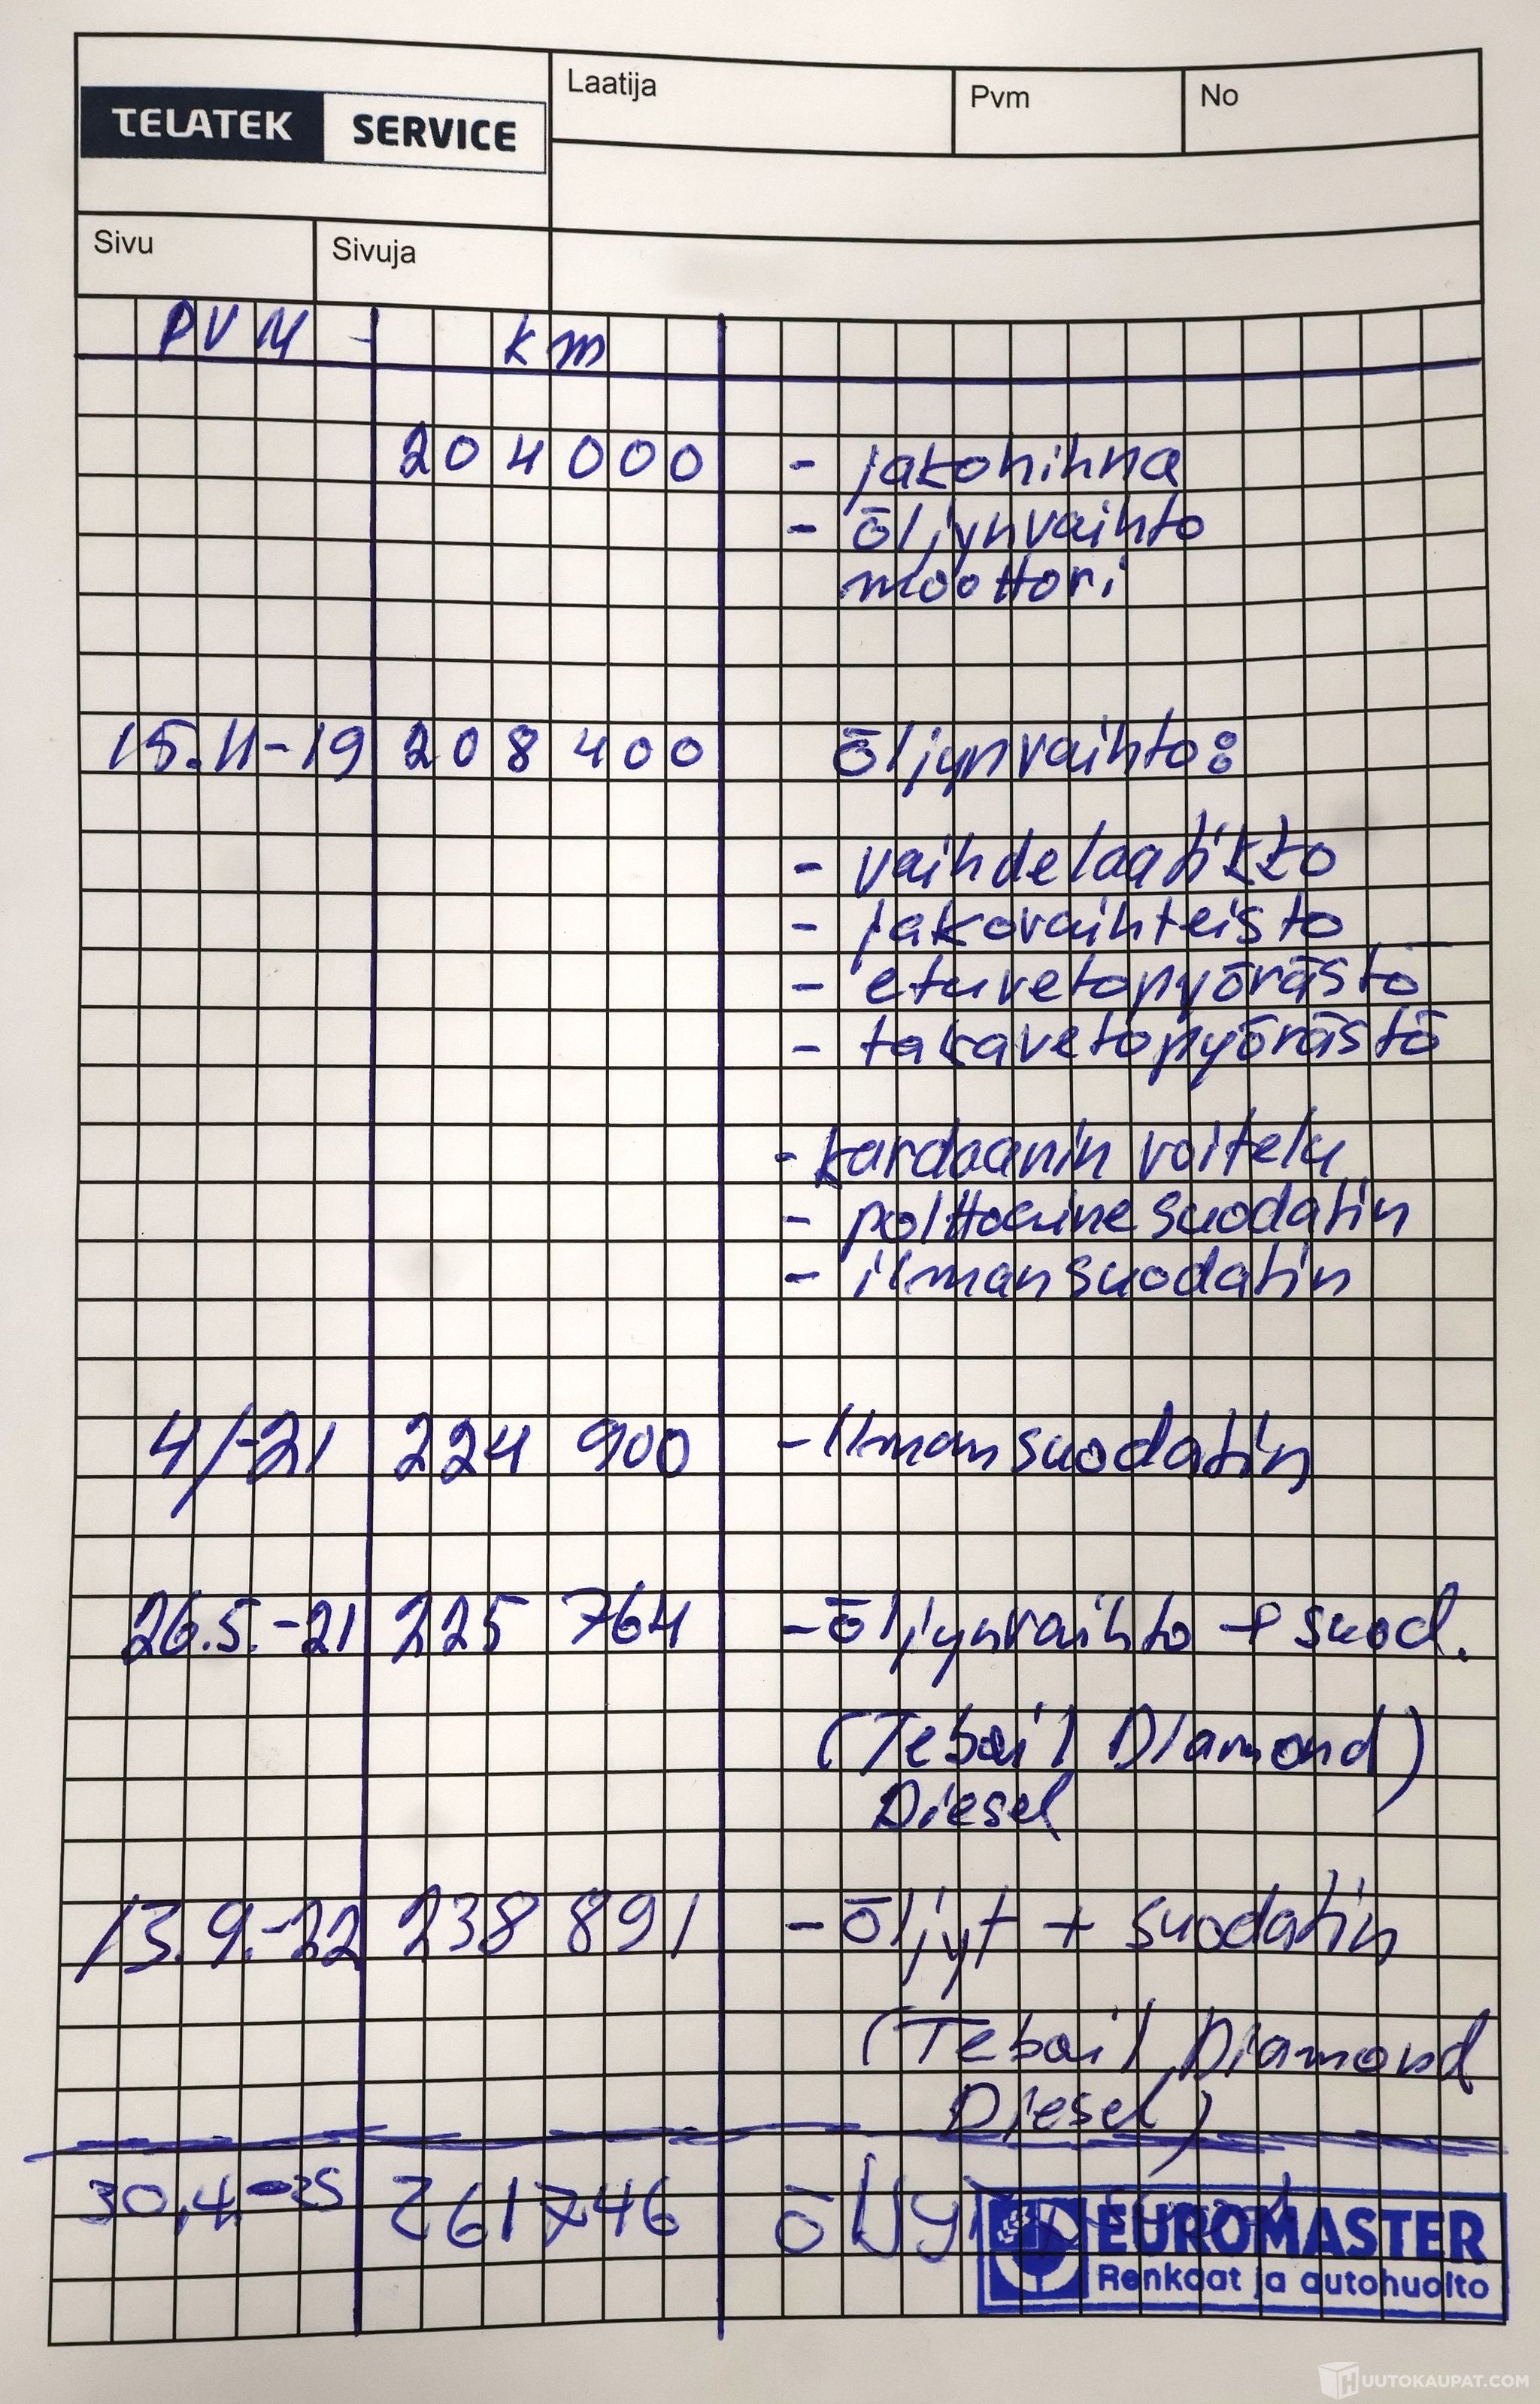 TELATEK SERVICE
Laatija
Pvm
No
Sivu
Sivuja
PVM - km
204000 - jakohihna
- öljynvaihto
moottori
15.11-19 208400 öljynvaihto:
- vaihdelaatikko
- jakovaihteisto
- etuvetopyörästö
- takavetopyörästö
- kardaanin voitelu
- polttoainesuodatin
- ilmansuodatin
4/-21 224 900 - Ilmansuodatin
26.5.-21 225 764 - öljynvaihto + suod.
(Teboil Diamond)
Diesel
13.9.-22 238 891 - öljyt + suodatin
(Teboil Diamond
Diesel)
30.4.-25 261746
EUROMASTER
Renkaat ja autohuolto
HUUTOKAUPAT.COM